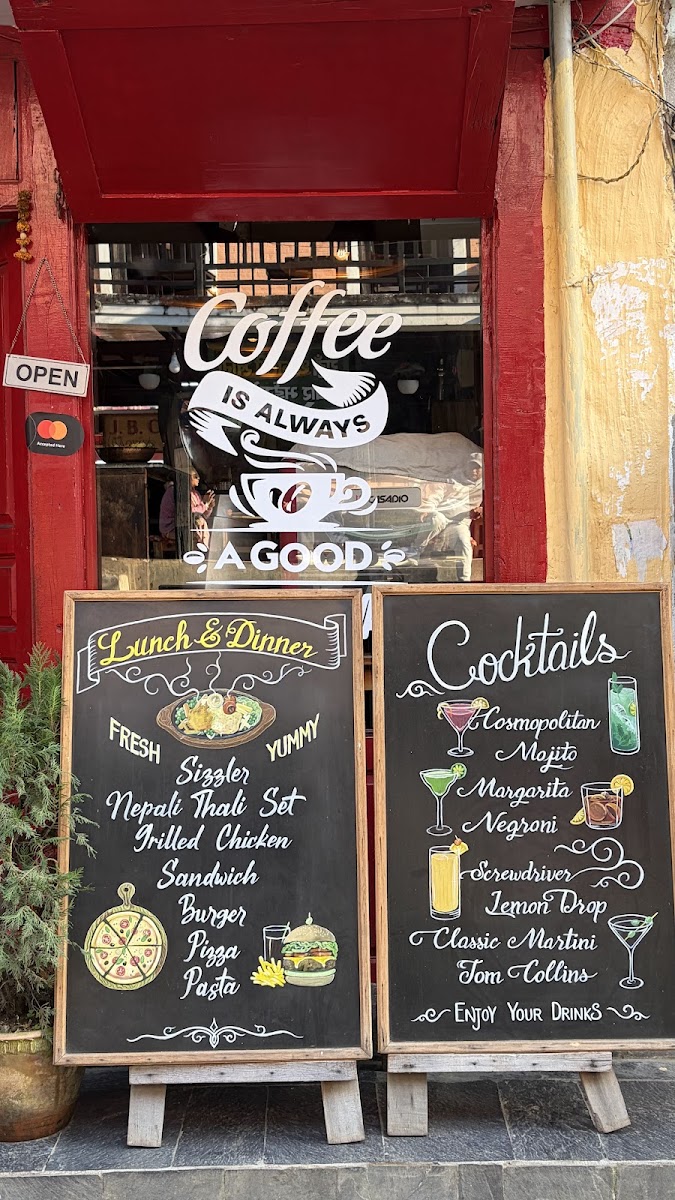 Coffee
IS ALWAYS
OPEN
Accepted Here
J.B.C
CASADIO
A GOOD
Lunch & Dinner
FRESH
YUMMY
Sizzler
Nepali Thali Set
Grilled Chicken
Sandwich
Burger
Pizza
Pasta
Cocktails
Cosmopolitan
Mojito
Margarita
Negroni
Screwdriver
Lemon Drop
Classic Martini
Tom Collins
ENJOY YOUR DRINKS